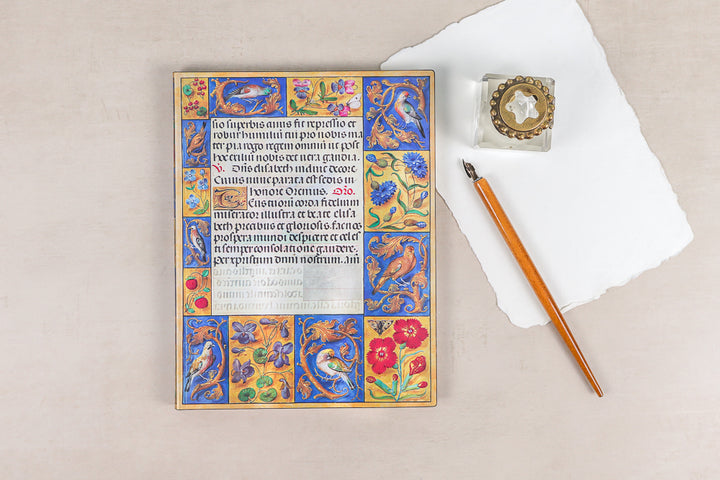 sio superbis anus fit repressio et
robur humiliū tui pro nobis ma
ter pia rego regem omniū ut post
hoc exiliū nobis det vera gaudia.
V. Dñs elisabeth induit decore
Cuius nunc parata est sedis in
honore Oremus. Oro.
Eus tuorū corda fidelium
miserator illustra et beate elisa
beth precibus et gloriosis. fac nos
prospera mundi despicere et celes
ti semper consolatione gaudere.
Per xpristum dnm nostrum. am